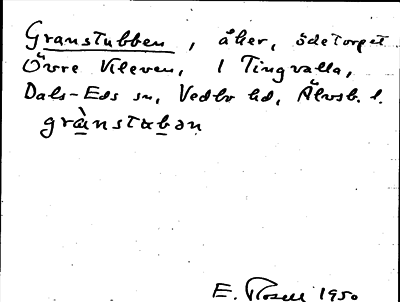 Granstubben, åker, ödetorpet
Övre Kleven, 1 Tingvalla,
Dals-Eds sn, Vedbo hd, Älvsb. l.
grànstɷbən
E. Rosell 1950